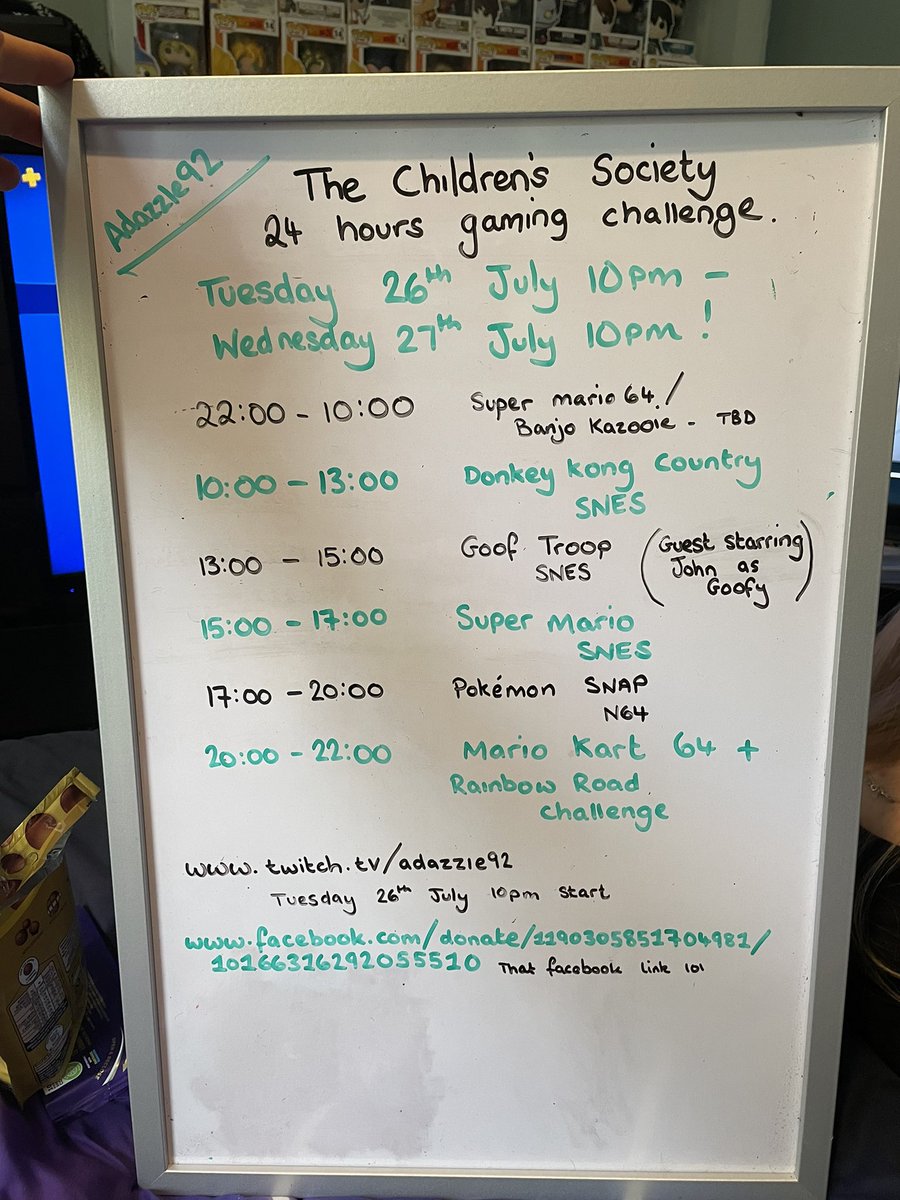 Adazzle92
The Children's Society
24 hours gaming challenge.
Tuesday 26th July 10pm -
Wednesday 27th July 10pm!
22:00 - 10:00 Super mario 64 /
Banjo Kazooie - TBD
10:00 - 13:00 Donkey Kong Country
SNES
13:00 - 15:00 Goof Troop (Guest starring
SNES John as
Goofy)
15:00 - 17:00 Super Mario
SNES
17:00 - 20:00 Pokémon SNAP
N64
20:00 - 22:00 Mario Kart 64 +
Rainbow Road
challenge
www.twitch.tv/adazzle92
Tuesday 26th July 10pm start
www.facebook.com/donate/1190305851704981/
10166316292055510 That facebook link lol